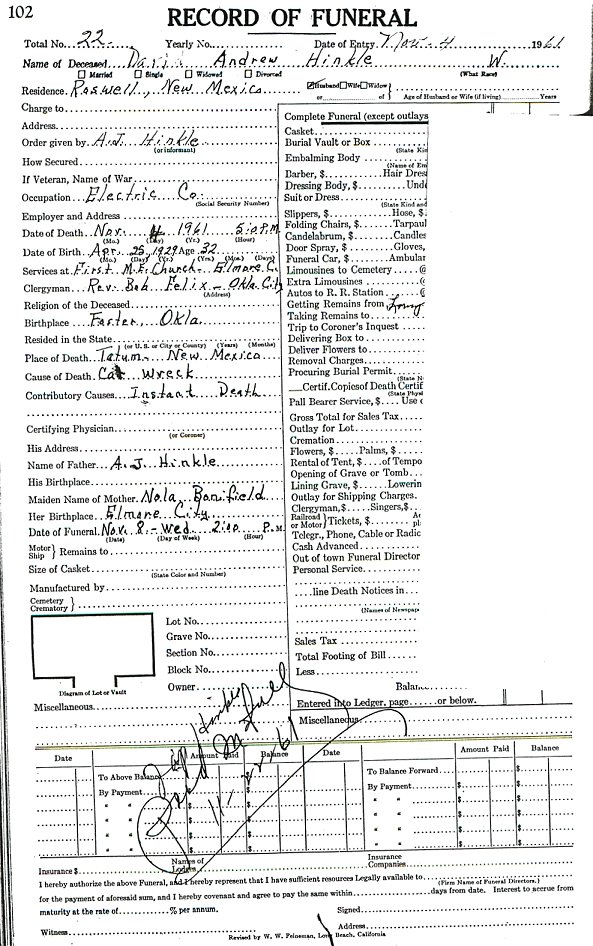 102
RECORD OF FUNERAL
Total No. 22. Yearly No. Date of Entry Nov. 4 1961
Name of Deceased Andrew Hinkle W.
Married Single Widowed Divorced (What Race)
Residence Roswell, New Mexico Husband Wife Widow
or of Age of Husband or Wife (if living) Years
Charge to
Address
Order given by A.J. Hinkle
(or informant)
How Secured
If Veteran, Name of War
Occupation Electric Co.
(Social Security Number)
Employer and Address
Date of Death Nov. 4 1961 5:00 P.M
(Mo.) (Day) (Yr.) (Hour)
Date of Birth Apr. 25, 1929 Age 32
(Mo.) (Day) (Yr.) (Yrs.) (Mos.) (Days)
Services at First M.E. Church - Elmore C.
Clergyman Rev. Bob Felix - Okla. City
(Address)
Religion of the Deceased
Birthplace Foster, Okla.
Resided in the State
(or U. S. or City or County) (Years) (Months)
Place of Death Tatum - New Mexico
Cause of Death Car Wreck
Contributory Causes Instant Death
Certifying Physician
(or Coroner)
His Address
Name of Father A. J. Hinkle
His Birthplace
Maiden Name of Mother Nola Bonifield
Her Birthplace Elmore City
Date of Funeral Nov. 8 - Wed. 2:00 P.M.
(Date) (Day of Week) (Hour)
Motor
Ship } Remains to
Size of Casket
(State Color and Number)
Manufactured by
Cemetery
Crematory }
Lot No.
Grave No.
Section No.
Block No.
Owner
Diagram of Lot or Vault
Miscellaneous
Complete Funeral (except outlays
Casket
Burial Vault or Box
(State Kin
Embalming Body
(Name of Em
Barber, $ Hair Dres
Dressing Body, $ Und
Suit or Dress
(State Kind and
Slippers, $ Hose, $
Folding Chairs, $ Tarpaul
Candelabrum, $ Candles
Door Spray, $ Gloves,
Funeral Car, $ Ambular
Limousines to Cemetery @
Extra Limousines @
Autos to R. R. Station @
Getting Remains from
Taking Remains to
Trip to Coroner's Inquest
Delivering Box to
Deliver Flowers to
Removal Charges
Procuring Burial Permit
(State N
Certif. Copies of Death Certif
(State Physi
Pall Bearer Service, $ Use o
Gross Total for Sales Tax
Outlay for Lot
Cremation
Flowers, $ Palms, $
Rental of Tent, $ of Tempo
Opening of Grave or Tomb
Lining Grave, $ Lowerin
Outlay for Shipping Charges
Clergyman, $ Singers, $
Railroad
or Motor } Tickets, $
Telegr., Phone, Cable or Radic
Cash Advanced
Out of town Funeral Director
Personal Service
line Death Notices in
(Names of Newspap
Sales Tax
Total Footing of Bill
Less
Balanc
Entered into Ledger, page or below.
Miscellaneous
Date Amount Paid Balance Date Amount Paid Balance
To Above Balance $ To Balance Forward $
By Payment $ By Payment $
" " $ " " $
" " $ " " $
" " $ " " $
" " $ " " $
Paid in full
11-22-61
Insurance $ Names of Lodges Insurance Companies
I hereby authorize the above Funeral, and I hereby represent that I have sufficient resources Legally available to
(Firm Name of Funeral Directors.)
for the payment of aforesaid sum, and I hereby covenant and agree to pay the same within days from date. Interest to accrue from
maturity at the rate of % per annum. Signed
Witness Address
Revised by W. W. Feineman, Long Beach, California